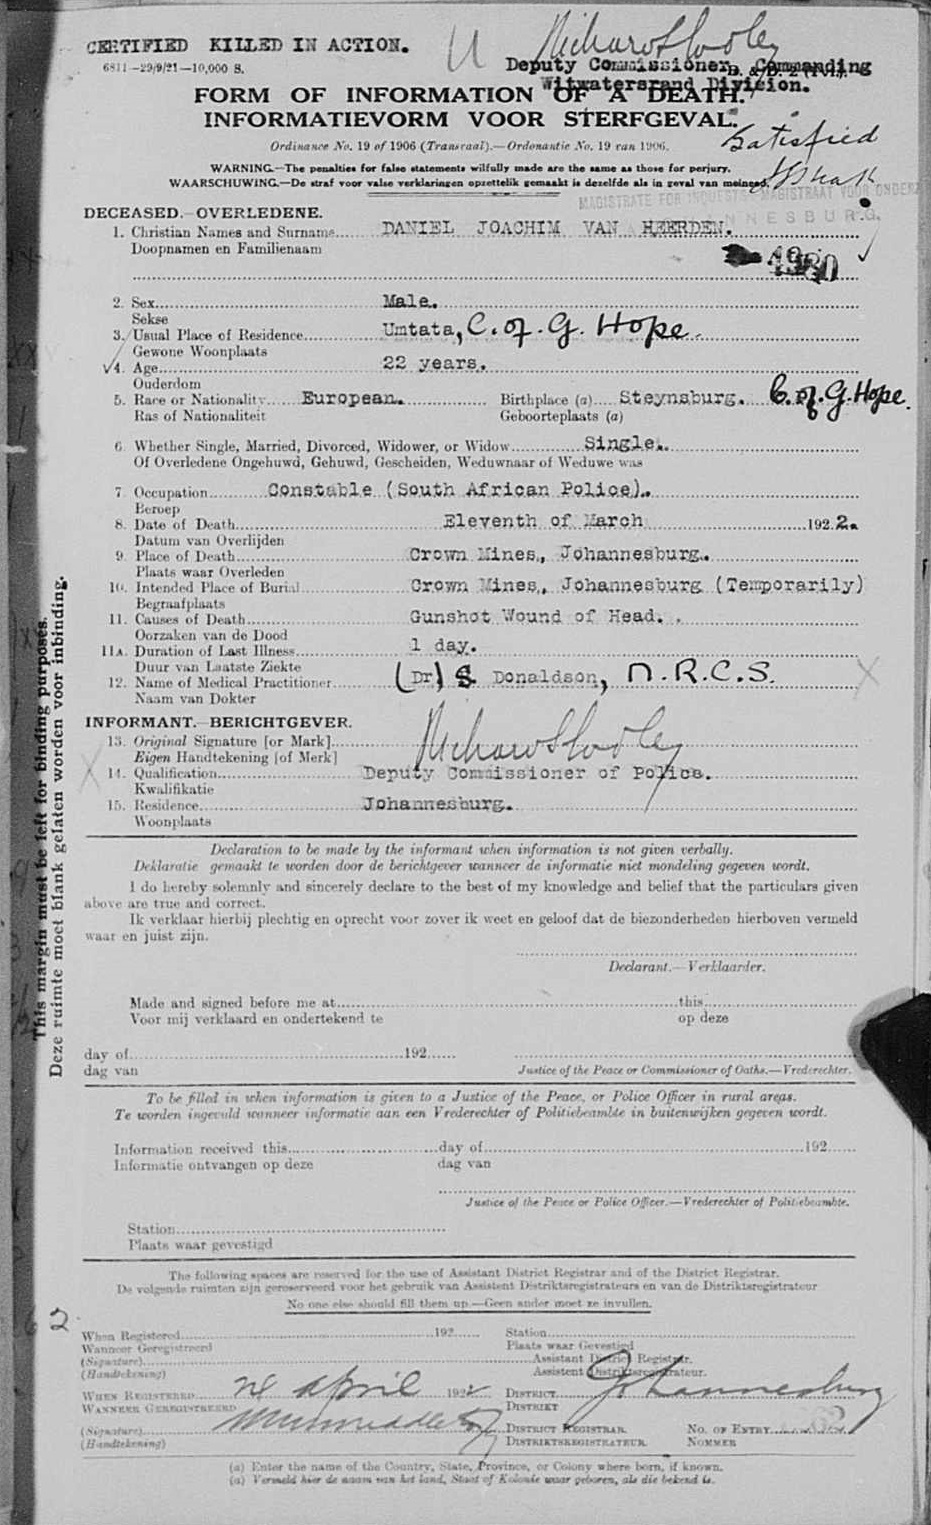 CERTIFIED KILLED IN ACTION.
6811—29/9/21—10,000 S.
Deputy Commissioner, Commanding
Witwatersrand Division.
FORM OF INFORMATION OF A DEATH.
INFORMATIEVORM VOOR STERFGEVAL.
Satisfied
Ordinance No. 19 of 1906 (Transvaal).—Ordonantie No. 19 van 1906.
WARNING.—The penalties for false statements wilfully made are the same as those for perjury.
WAARSCHUWING.—De straf voor valse verklaringen opzettelik gemaakt is dezelfde als in geval van meineed.
MAGISTRATE FOR INQUESTS MAGISTRAAT VOOR ONDERZ
JOHANNESBURG.
DECEASED.—OVERLEDENE.
1. Christian Names and Surname DANIEL JOACHIM VAN HEERDEN.
Doopnamen en Familienaam
2. Sex Male.
Sekse
3. Usual Place of Residence Umtata, C. of. G. Hope.
Gewone Woonplaats
4. Age 22 years.
Ouderdom
5. Race or Nationality European. Birthplace (a) Steynsburg. C. of. G. Hope.
Ras of Nationaliteit Geboorteplaats (a)
6. Whether Single, Married, Divorced, Widower, or Widow Single.
Of Overledene Ongehuwd, Gehuwd, Gescheiden, Weduwnaar of Weduwe was
7. Occupation Constable (South African Police).
Beroep
8. Date of Death Eleventh of March 1922.
Datum van Overlijden
9. Place of Death Crown Mines, Johannesburg.
Plaats waar Overleden
10. Intended Place of Burial Crown Mines, Johannesburg (Temporarily)
Begraafplaats
11. Causes of Death Gunshot Wound of Head.
Oorzaken van de Dood
11A. Duration of Last Illness 1 day.
Duur van Laatste Ziekte
12. Name of Medical Practitioner (Dr) S. Donaldson, M.R.C.S.
Naam van Dokter
INFORMANT.—BERICHTGEVER.
13. Original Signature [or Mark]
Eigen Handtekening [of Merk]
14. Qualification Deputy Commissioner of Police.
Kwalifikatie
15. Residence Johannesburg.
Woonplaats
Declaration to be made by the informant when information is not given verbally.
Deklaratie gemaakt te worden door de berichtgever wanneer de informatie niet mondeling gegeven wordt.
I do hereby solemnly and sincerely declare to the best of my knowledge and belief that the particulars given
above are true and correct.
Ik verklaar hierbij plechtig en oprecht voor zover ik weet en geloof dat de biezonderheden hierboven vermeld
waar en juist zijn.
Declarant.—Verklaarder.
Made and signed before me at this
Voor mij verklaard en ondertekend te op deze
day of 192
dag van Justice of the Peace or Commissioner of Oaths.—Vrederechter.
To be filled in when information is given to a Justice of the Peace, or Police Officer in rural areas.
Te worden ingevuld wanneer informatie aan een Vrederechter of Politiebeambte in buitenwijken gegeven wordt.
Information received this day of 192
Informatie ontvangen op deze dag van
Justice of the Peace or Police Officer.—Vrederechter of Politiebeambte.
Station
Plaats waar gevestigd
The following spaces are reserved for the use of Assistant District Registrar and of the District Registrar.
De volgende ruimten zijn gereserveerd voor het gebruik van Assistent Distriktsregistrateurs en van de Distriktsregistrateur
No one else should fill them up.—Geen ander moet ze invullen.
When Registered 192 Station
Wanneer Geregistreerd Plaats waar Gevestigd
(Signature) Assistant District Registrar.
(Handtekening) Assistent Distriktsregistrateur.
WHEN REGISTERED 28 April 1922 DISTRICT Johannesburg
WANNEER GEREGISTREERD DISTRIKT
(Signature) DISTRICT REGISTRAR. NO. OF ENTRY
(Handtekening) DISTRIKTSREGISTRATEUR. NOMMER
(a) Enter the name of the Country, State, Province, or Colony where born, if known.
(a) Vermeld hier de naam van het land, Staat of Kolonie waar geboren, als die bekend is.
This margin must be left for binding purposes.
Deze ruimte moet blank gelaten worden voor inbinding.
2